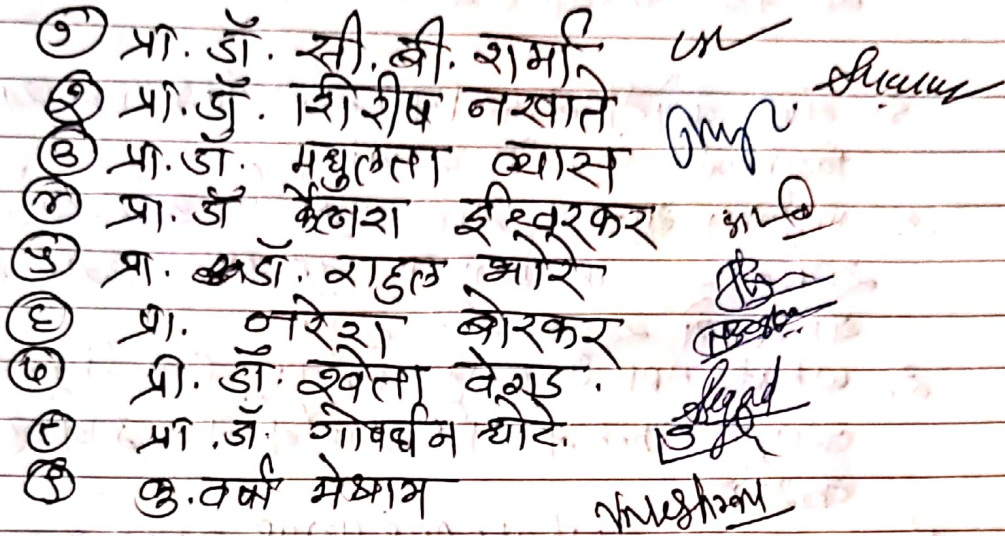 १ प्रा. डॉ. सी. बी. शर्मा
२ प्रा. डॉ. शिरीष नखाते
३ प्रा. डॉ. मधुलता व्यास
४ प्रा. डॉ कैलाश ईश्वरकर
५ प्रा. डॉ. राहुल भोरे
६ प्रा. नरेश बोरकर
७ प्रा. डॉ. श्वेता वेगड.
८ प्रा. डॉ. गोवर्धन थोटे.
९ कु. वर्षा मेश्राम